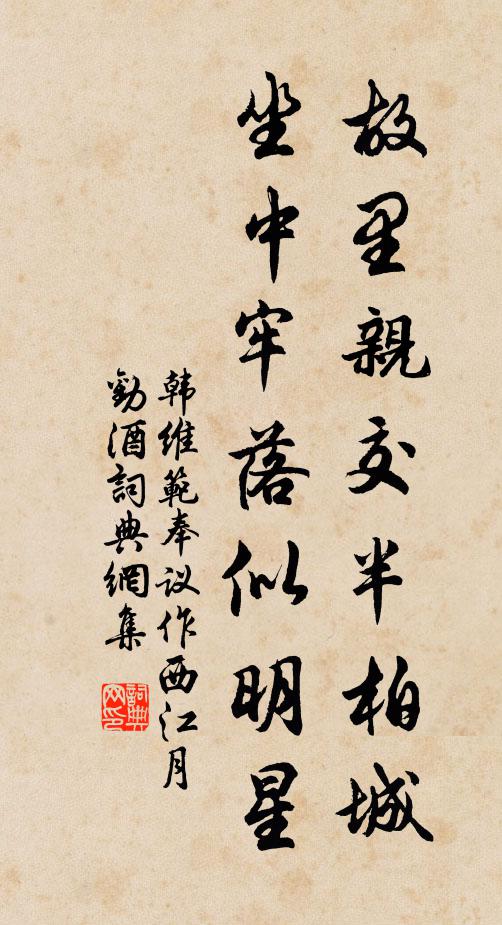 故里親交半柏城
坐中牢落似明星
韩維範奉议作西江月
勸酒詞典網集
詞典网印